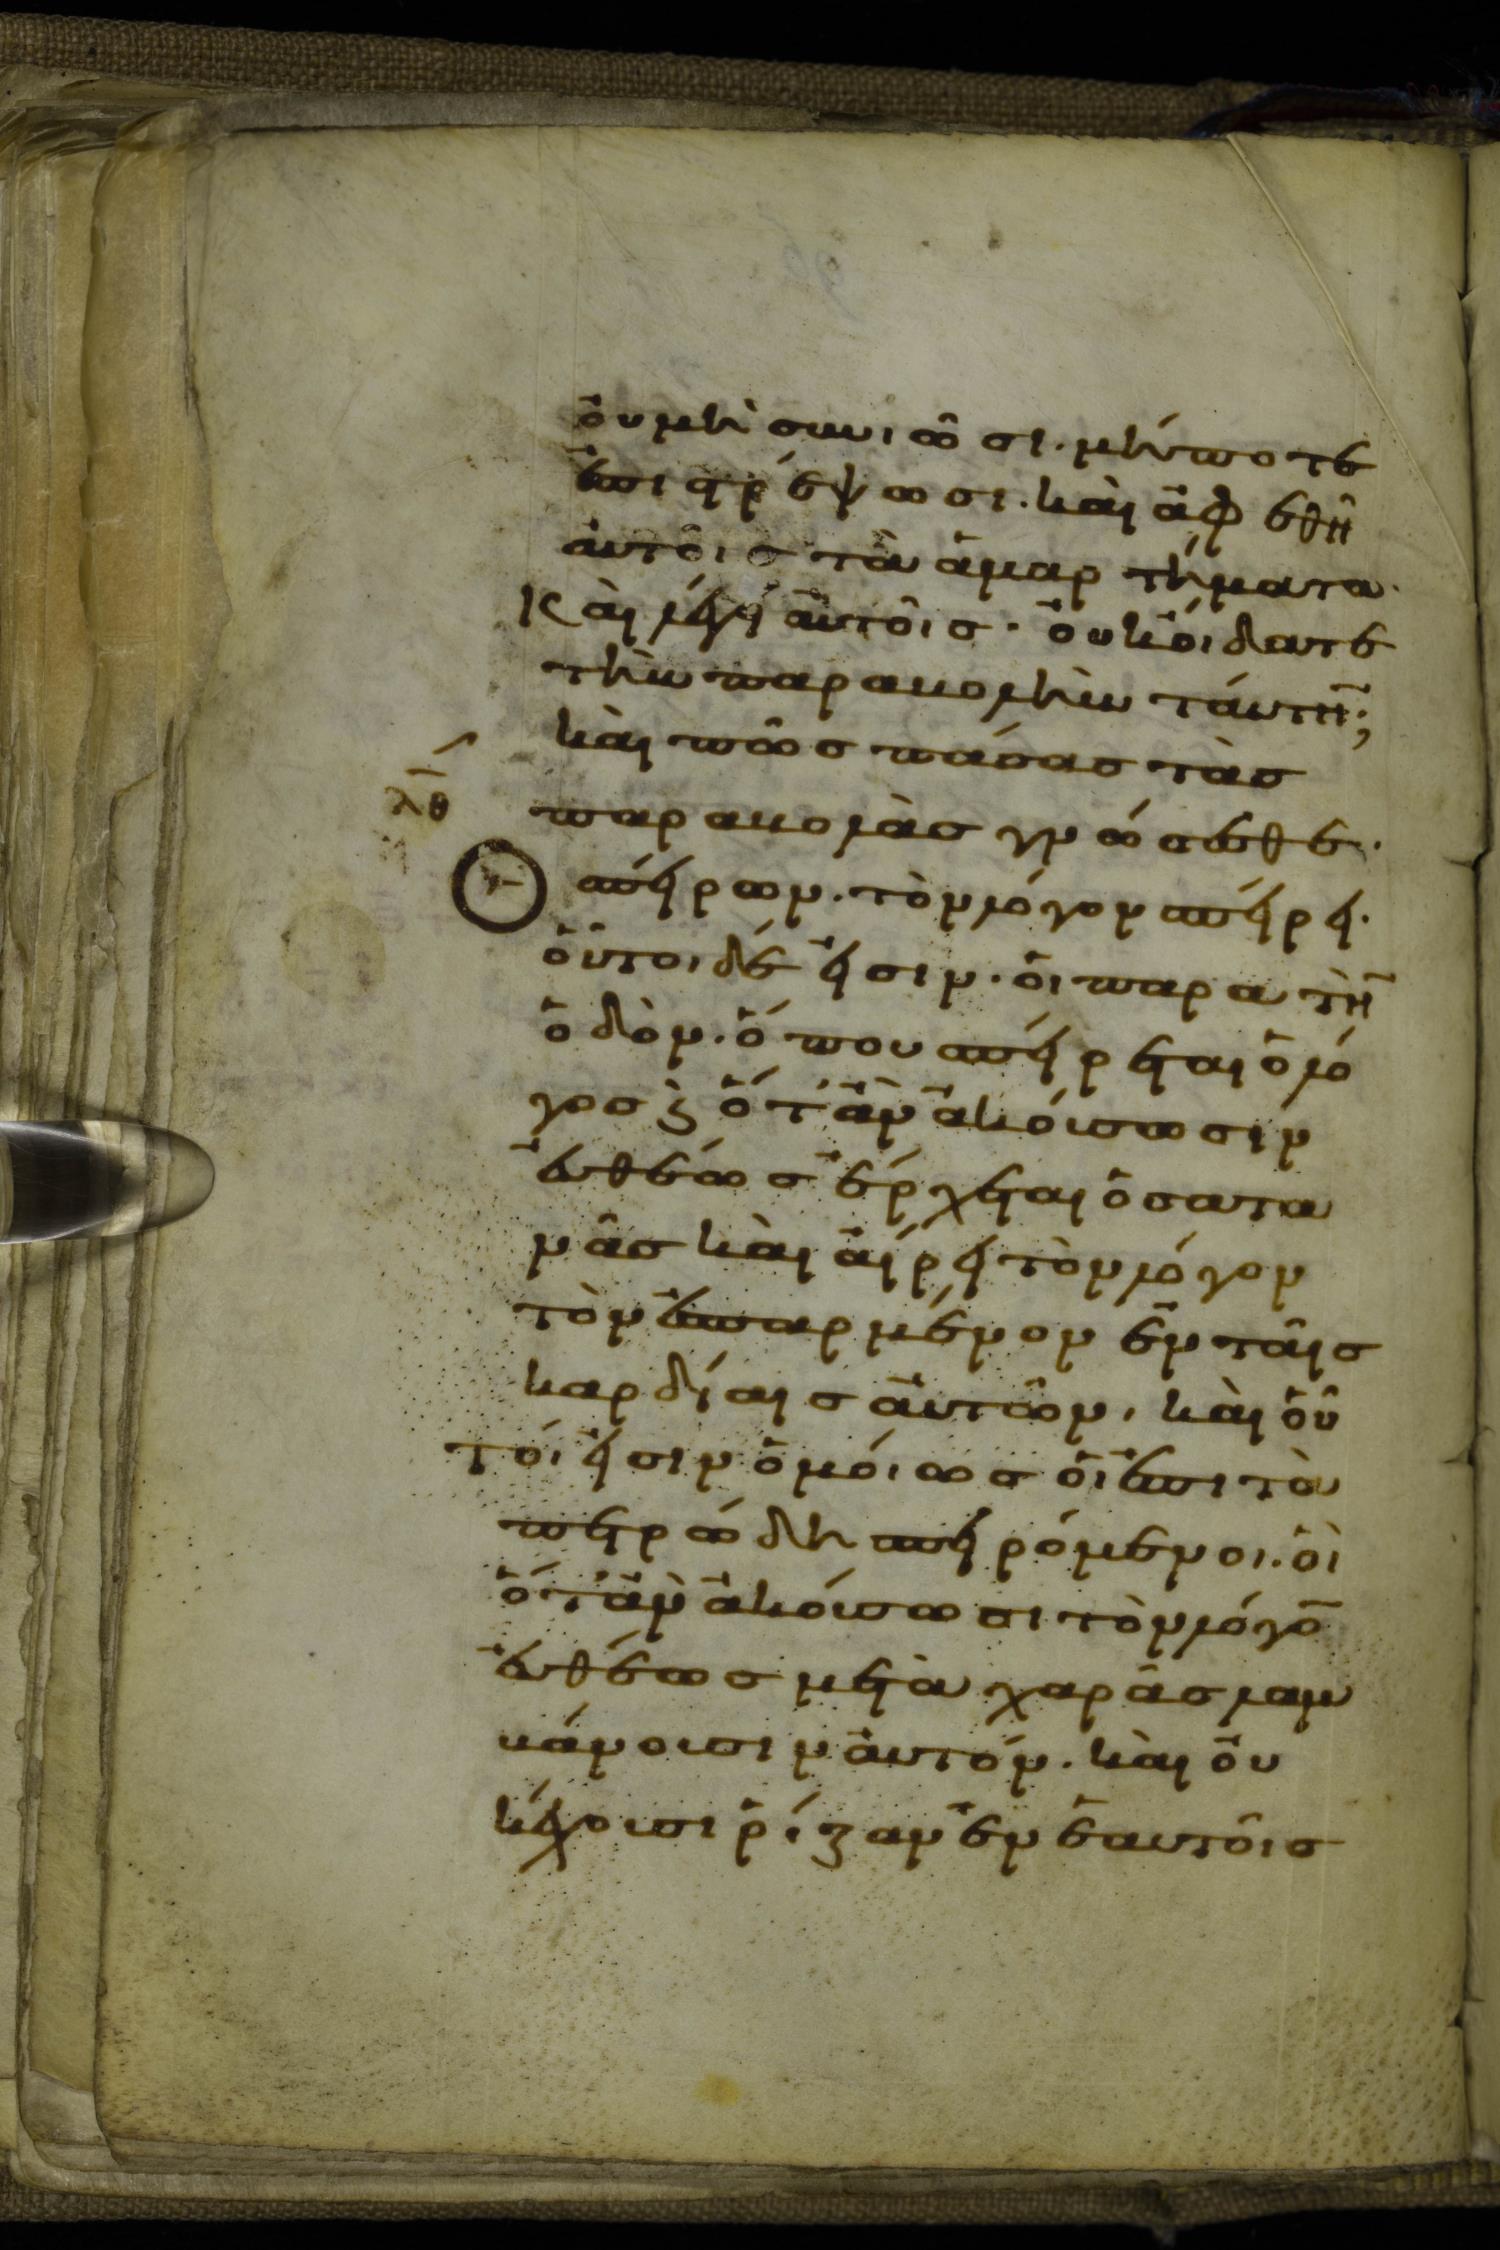 ὂυ μὴ συνιῶσι. μήποτε
ἐπιστρέψωσι. καὶ ἀφεθῆ
ἀυτοῖσ τὰ ἁμαρτήματα.
Και λέγει ἀυτοῖσ· ὀυκ ὄιδατε
τὴν παραβολὴν τάυτη̄;
καὶ πῶσ πάσασ τὰσ
παραβολὰσ γνώσεσθε.
λθ
Ὁ σπείρων. τὸν λόγον σπείρει.
οὗτοι δέ εἰσιν. ὁι παρα τὴ̄
ὁδὸν. ὅπου σπείρεται ὁ λό
γοσ ϗ ὅταν ἀκόυσωσιν
ἐυθέωσ ἔρχεται ὁ σατα
νᾶσ καὶ ἄιρει τὸν λόγον
τὸν ἐσπαρμένον ἐν ταῖσ
καρδίαισ ἀυτῶν, καὶ οὗ
τοί εἰσιν ὁμόιωσ ὁι ἐπι τὰ
πετρώδη σπειρόμενοι. ὁὶ
ὅταν ἀκόυσωσι τὸν λόγο̄
ἐυθέωσ μετὰ χαρᾶσ λαμ
βάνουσιν ἀυτόν. καὶ ὀυ
κ έχουσι ῥίζαν ἐν ἑαυτοῖσ